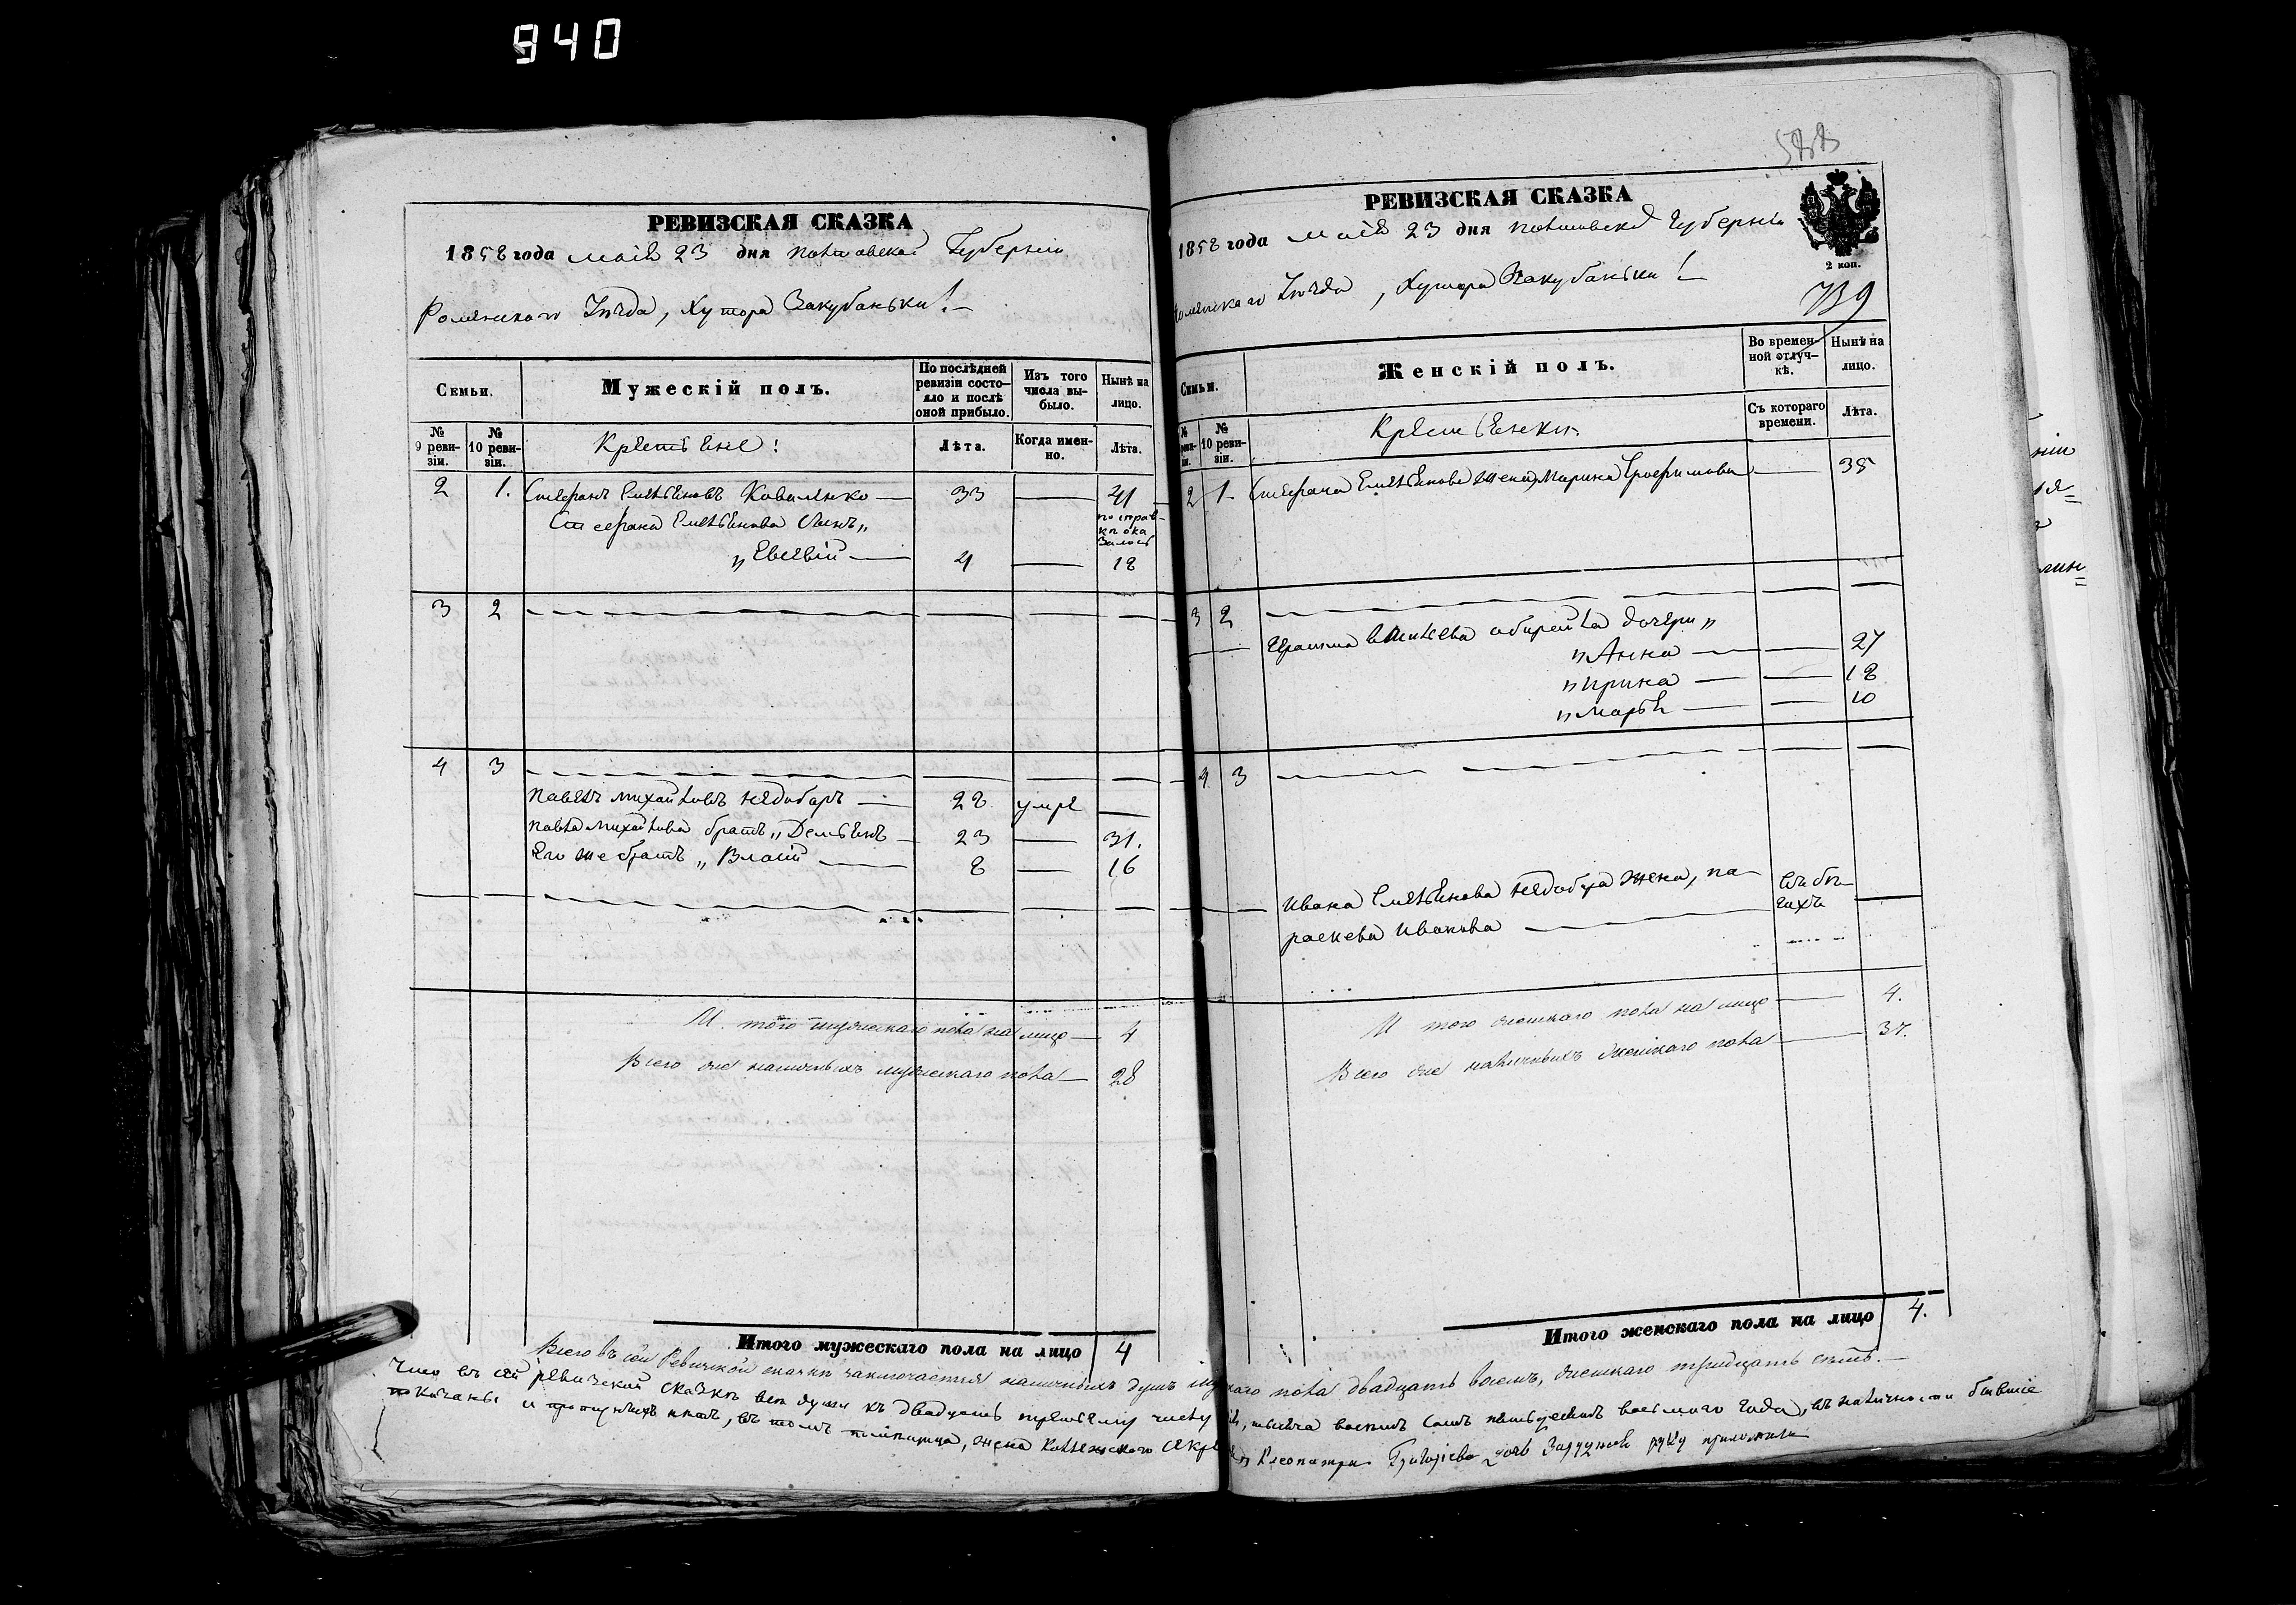 940
РЕВИЗСКАЯ СКАЗКА
1858 года маія 23 дня Полтавской Губерніи
Роменскаго Уѣзда, Хутора Закубаньки!
Семьи.
Мужескій полъ.
По послѣдней ревизіи состо-
яло и послѣ
оной прибыло.
Изъ того
числа вы-
было.
Нынѣ на
лицо.
№
9 реви-
зіи.
№
10 реви-
зіи.
Крестьяне:
Лѣта.
Когда имен-
но.
Лѣта.
2 1. Стефанъ Емельяновъ Коваленко — 33 — 41
Стефана Емельянова сынъ„
по справ-
кѣ ока
залось
„Евсевій — 4 — 18
3 2
4 3
Павелъ Михайловъ Недоборъ — 28 умре —
Павла Михайлова братъ „Демьянъ — 23 — 31.
Его же братъ „Власій — 8 — 16
И того мужескаго пола на лицо — 4
Всего же наличныхъ мужескаго пола — 28
Итого мужескаго пола на лицо 4
588
РЕВИЗСКАЯ СКАЗКА
1858 года маія 23 дня Полтавской Губерніи
2 коп.
Роменскаго Уѣзда, Хутора Закубаньки!
739
Семьи.
Женскій полъ.
Во времен-
ной отлуч-
кѣ.
Нынѣ на
лицо.
№
реви-
зіи.
№
10 реви-
зіи.
Крестьянки
Съ котораго
времени.
Лѣта.
2 1. Стефана Емельянова жена, Марина Трофимова — 35
3 2
дочери„
„Анна — — 27
„Ирина — — 18
„Марья — — 10
4 3
Ивана Емельянова Недобора жена, Па-
раскева Иванова —
въ бѣ-
гахъ
И того женскаго пола на лицо — 4.
Всего же наличныхъ женскаго пола — 37.
Итого женскаго пола на лицо 4.
Всего въ сей Ревизской сказкѣ заключается наличныхъ душъ мужскаго пола двадцать восемь, женскаго тридцать семь.
Что въ сей ревизской сказкѣ всѣ души къ двадцать третьему числу маія, тысяча восемь сотъ пятьдесятъ восьмаго года, въ наличности бывшіе
показаны и пропущенныхъ нѣтъ, въ томъ помѣщица, жена Коллежскаго Клеопатра Григорьева дочь руку приложила